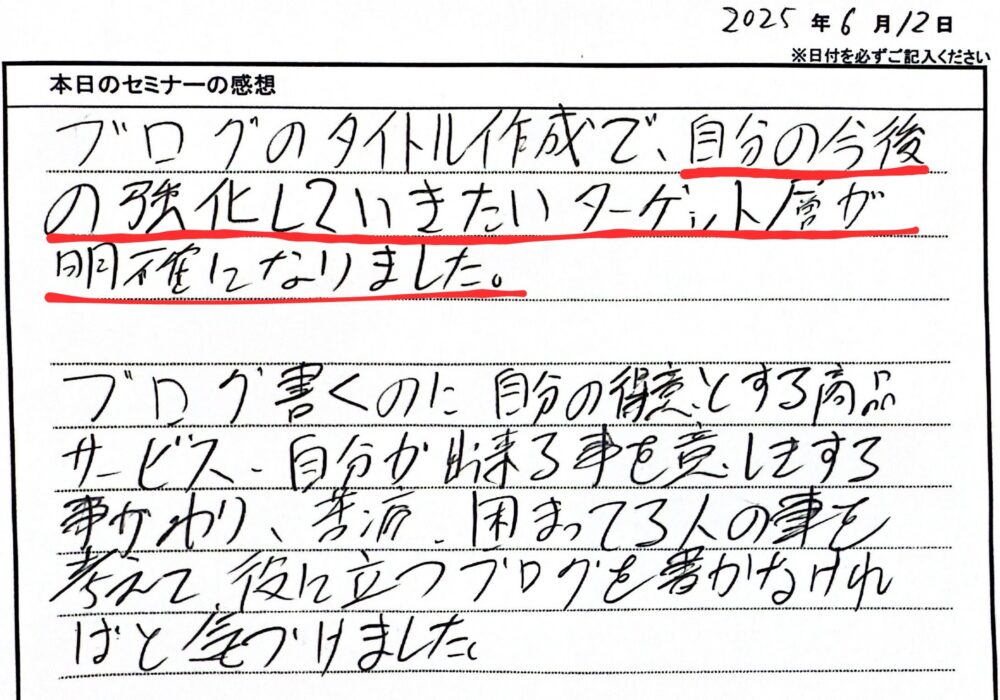 2025 年 6 月 12 日
※日付を必ずご記入ください
本日のセミナーの感想
ブログのタイトル作成で、自分の今後
の強化していきたいターゲット層が
明確になりました。
ブログ書くのに自分の得意とする商品
サービス、自分が出来る事を意しきする
事がわり、苦 、困まってる人の事を
考えて、役に立つブログを書かなけれ
ばと気づけました。